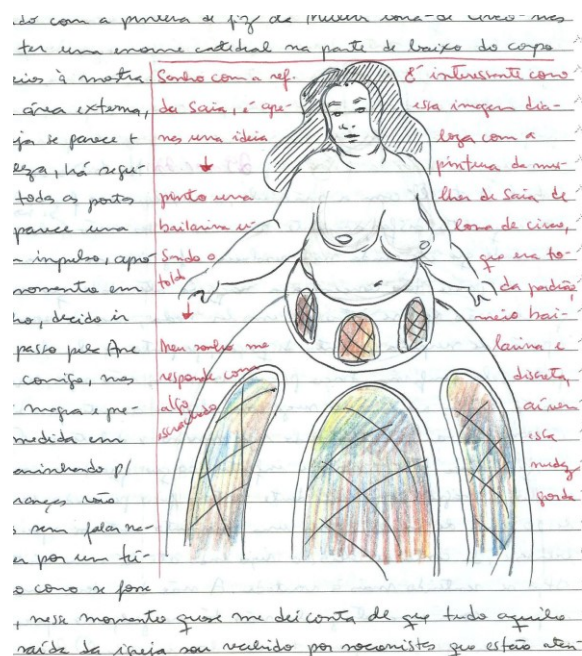 do com a pintura q fiz da mulher lona-de circo-mas
ter uma enorme catedral na parte de baixo do corpo
eios à mostra
área externa,
eja se parece t
eza, há segu-
todas as portas
parece uma
impulso, após
momento em
ho, decido ir
passo pela Ane
comigo, mas
magra e pre-
medida em
aminhando p/
ranças vão
sem falar na-
er por um tú-
o como se fosse
Sonho com a ref.
da Saia, é ape-
nas uma ideia
pinto uma
bailarina u-
sando o
toldo
Meu sonho me
responde com
algo
escrachado
É interessante como
essa imagem dia-
loga com a
pintura da mu-
lher de saia de
lona de circo,
que era to-
da padrão,
meio bai-
larina e
discreta
aí vem
essa
nudez
gorda
, nesse momento quase me dei conta de que tudo aquilo
saída da igreja sou recebido por socorristas que estão aten